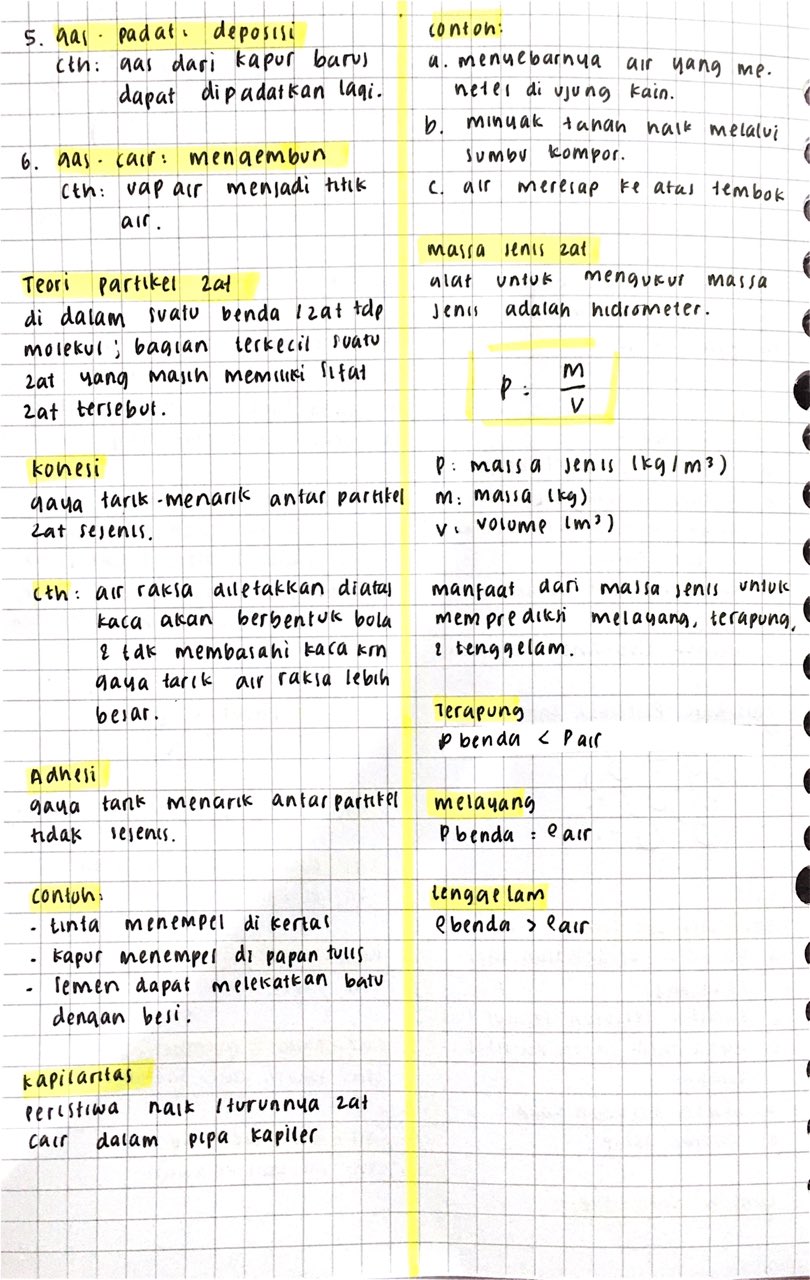 5. gas - padat : deposisi
cth: gas dari kapur barus
dapat dipadatkan lagi.
6. gas - cair : mengembun
cth: uap air menjadi titik
air.
Teori partikel zat
di dalam suatu benda / zat tdp
molekul ; bagian terkecil suatu
zat yang masih memiliki sifat
zat tersebut.
kohesi
gaya tarik-menarik antar partikel
zat sejenis.
cth : air raksa diletakkan diatas
kaca akan berbentuk bola
& tdk membasahi kaca krn
gaya tarik air raksa lebih
besar.
Adhesi
gaya tarik menarik antar partikel
tidak sejenis.
Contoh:
- tinta menempel di kertas
- kapur menempel di papan tulis
- semen dapat melekatkan batu
dengan besi.
kapilaritas
peristiwa naik / turunnya zat
cair dalam pipa kapiler
contoh:
a. menyebarnya air yang me-
netes di ujung kain.
b. minyak tanah naik melalui
sumbu kompor.
c. air meresap ke atas tembok
massa jenis zat
alat untuk mengukur massa
jenis adalah hidrometer.
ρ = m/v
ρ : massa jenis (kg/m³)
m : massa (kg)
v : volume (m³)
manfaat dari massa jenis untuk
memprediksi melayang, terapung,
& tenggelam.
Terapung
ρ benda < ρ air
melayang
ρ benda = ρ air
tenggelam
ρ benda > ρ air